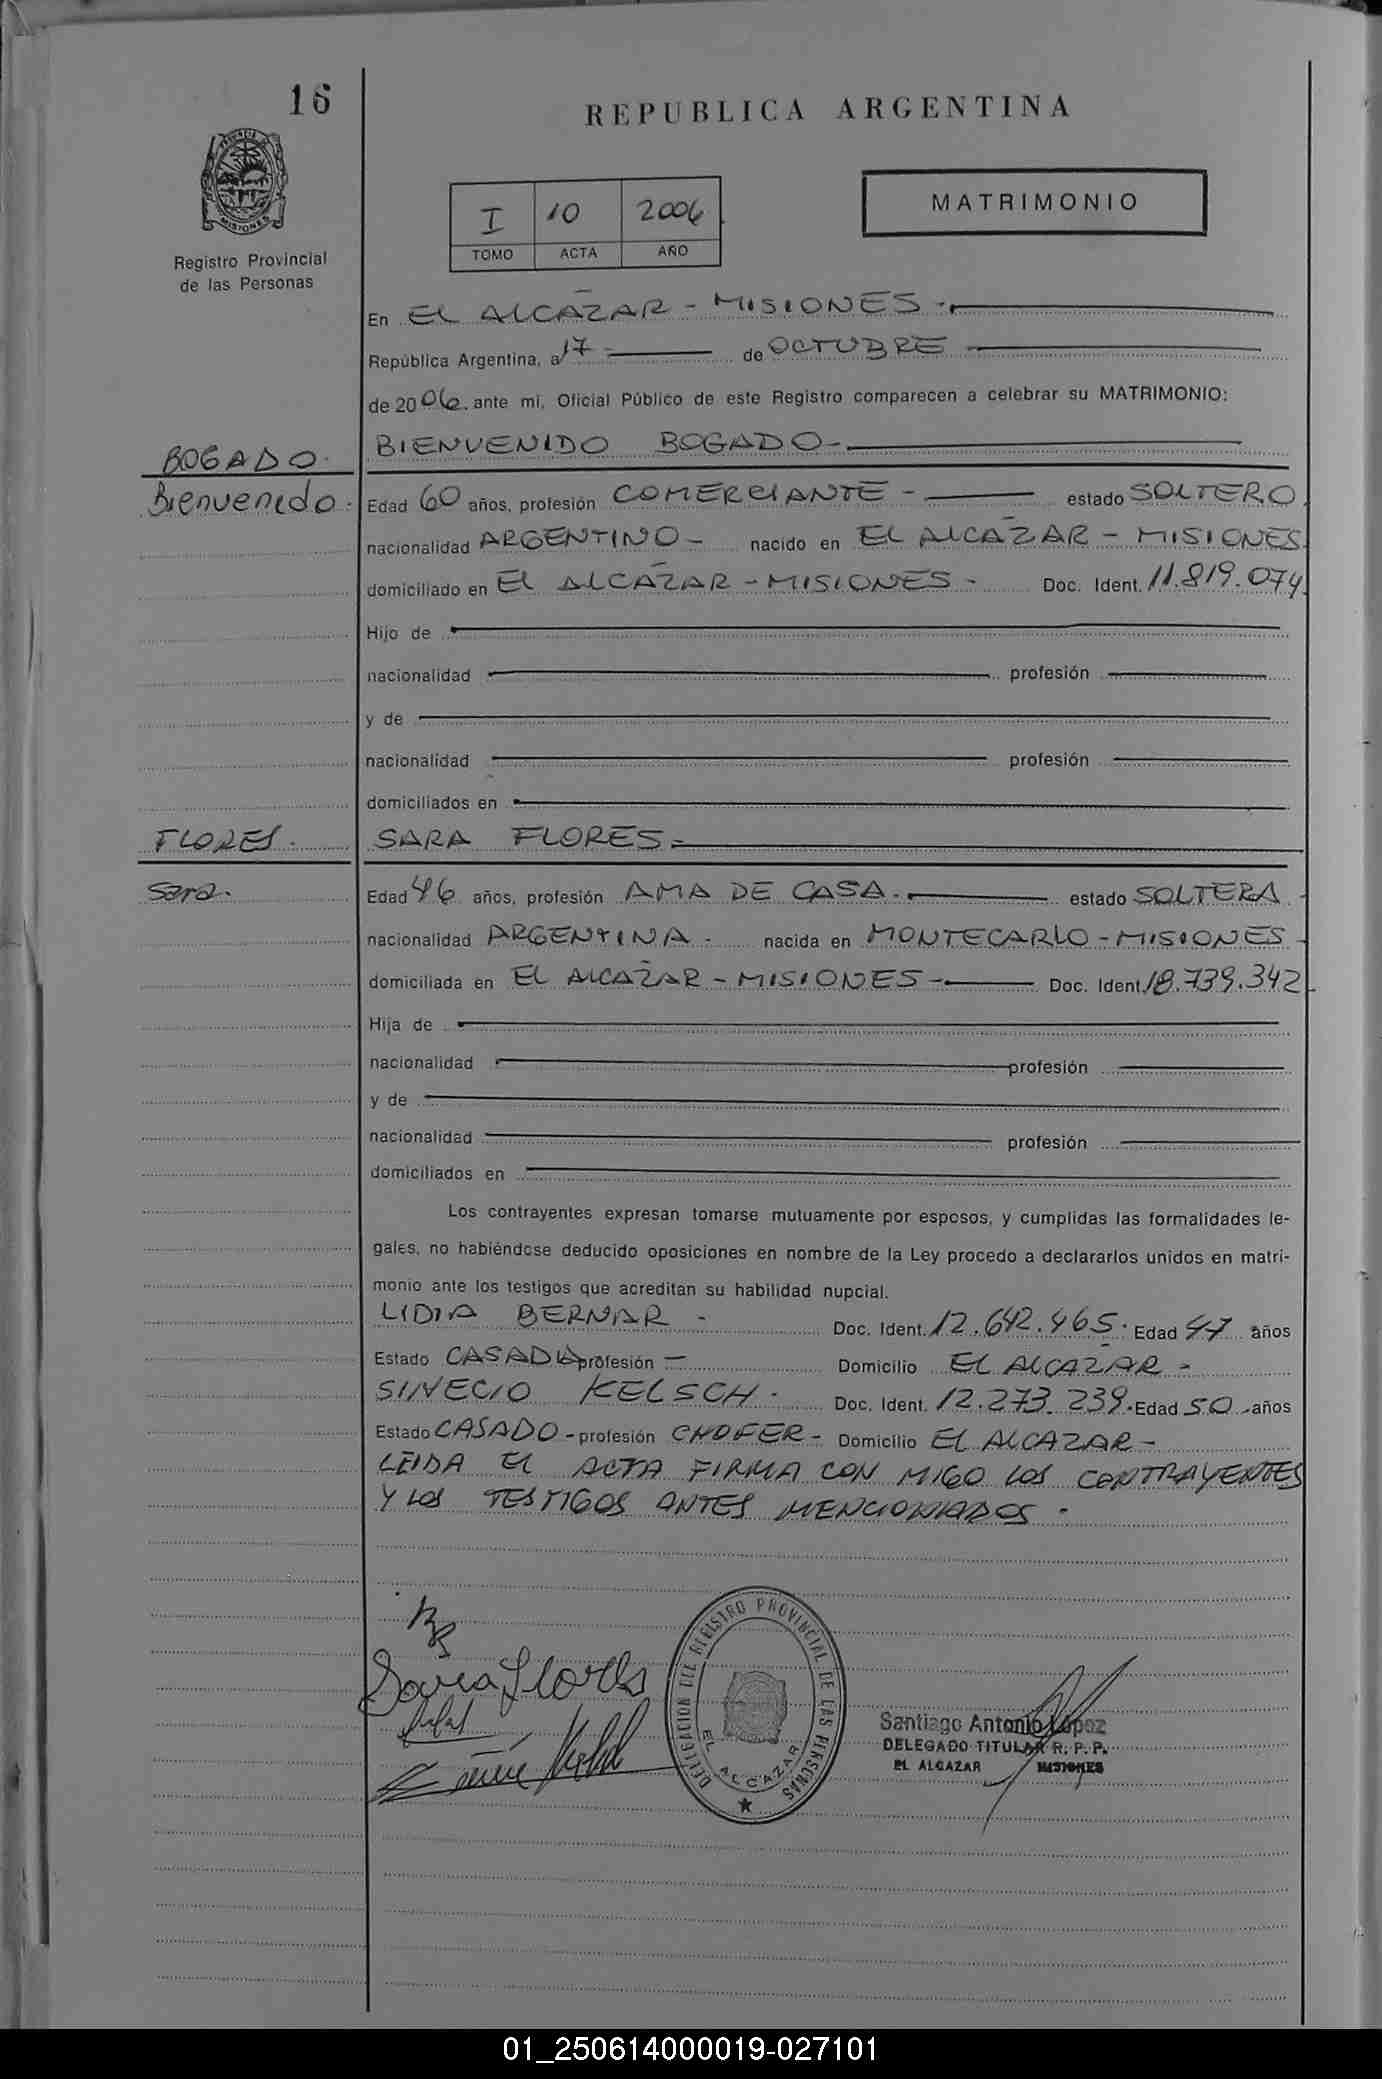 16
REPUBLICA ARGENTINA
MATRIMONIO
I 10 2006
TOMO ACTA AÑO
MISIONES
Registro Provincial
de las Personas
En EL ALCAZAR - MISIONES -
República Argentina, a 17 - de OCTUBRE
de 2006. ante mí, Oficial Público de este Registro comparecen a celebrar su MATRIMONIO:
BOGADO - BIENVENIDO BOGADO -
Bienvenido - Edad 60 años, profesión COMERCIANTE - estado SOLTERO
nacionalidad ARGENTINO - nacido en EL ALCAZAR - MISIONES
domiciliado en EL ALCAZAR - MISIONES - Doc. Ident. 11.819.074
Hijo de
nacionalidad profesión
y de
nacionalidad profesión
domiciliados en
FLORES. SARA FLORES -
Sara. Edad 46 años, profesión AMA DE CASA. estado SOLTERA -
nacionalidad ARGENTINA. nacida en MONTECARLO - MISIONES -
domiciliada en EL ALCAZAR - MISIONES - Doc. Ident. 18.739.342
Hija de
nacionalidad profesión
y de
nacionalidad profesión
domiciliados en
Los contrayentes expresan tomarse mutuamente por esposos, y cumplidas las formalidades le-
gales, no habiéndose deducido oposiciones en nombre de la Ley procedo a declararlos unidos en matri-
monio ante los testigos que acreditan su habilidad nupcial.
LIDIA BERNAR - Doc. Ident. 12.642.465. Edad 47 años
Estado CASADA profesión - Domicilio EL ALCAZAR -
SINECIO KELSCH. Doc. Ident. 12.273.239. Edad 50 años
Estado CASADO - profesión CHOFER - Domicilio EL ALCAZAR -
LEIDA EL ACTA FIRMA CON MIGO LOS CONTRAYENTES
Y LOS TESTIGOS ANTES MENCIONADOS.
Sara Flores
DELEGACION DEL REGISTRO PROVINCIAL DE LAS PERSONAS
EL ALCAZAR
Santiago Antonio López
DELEGADO TITULAR R. P. P.
EL ALCAZAR MISIONES
01_250614000019-027101